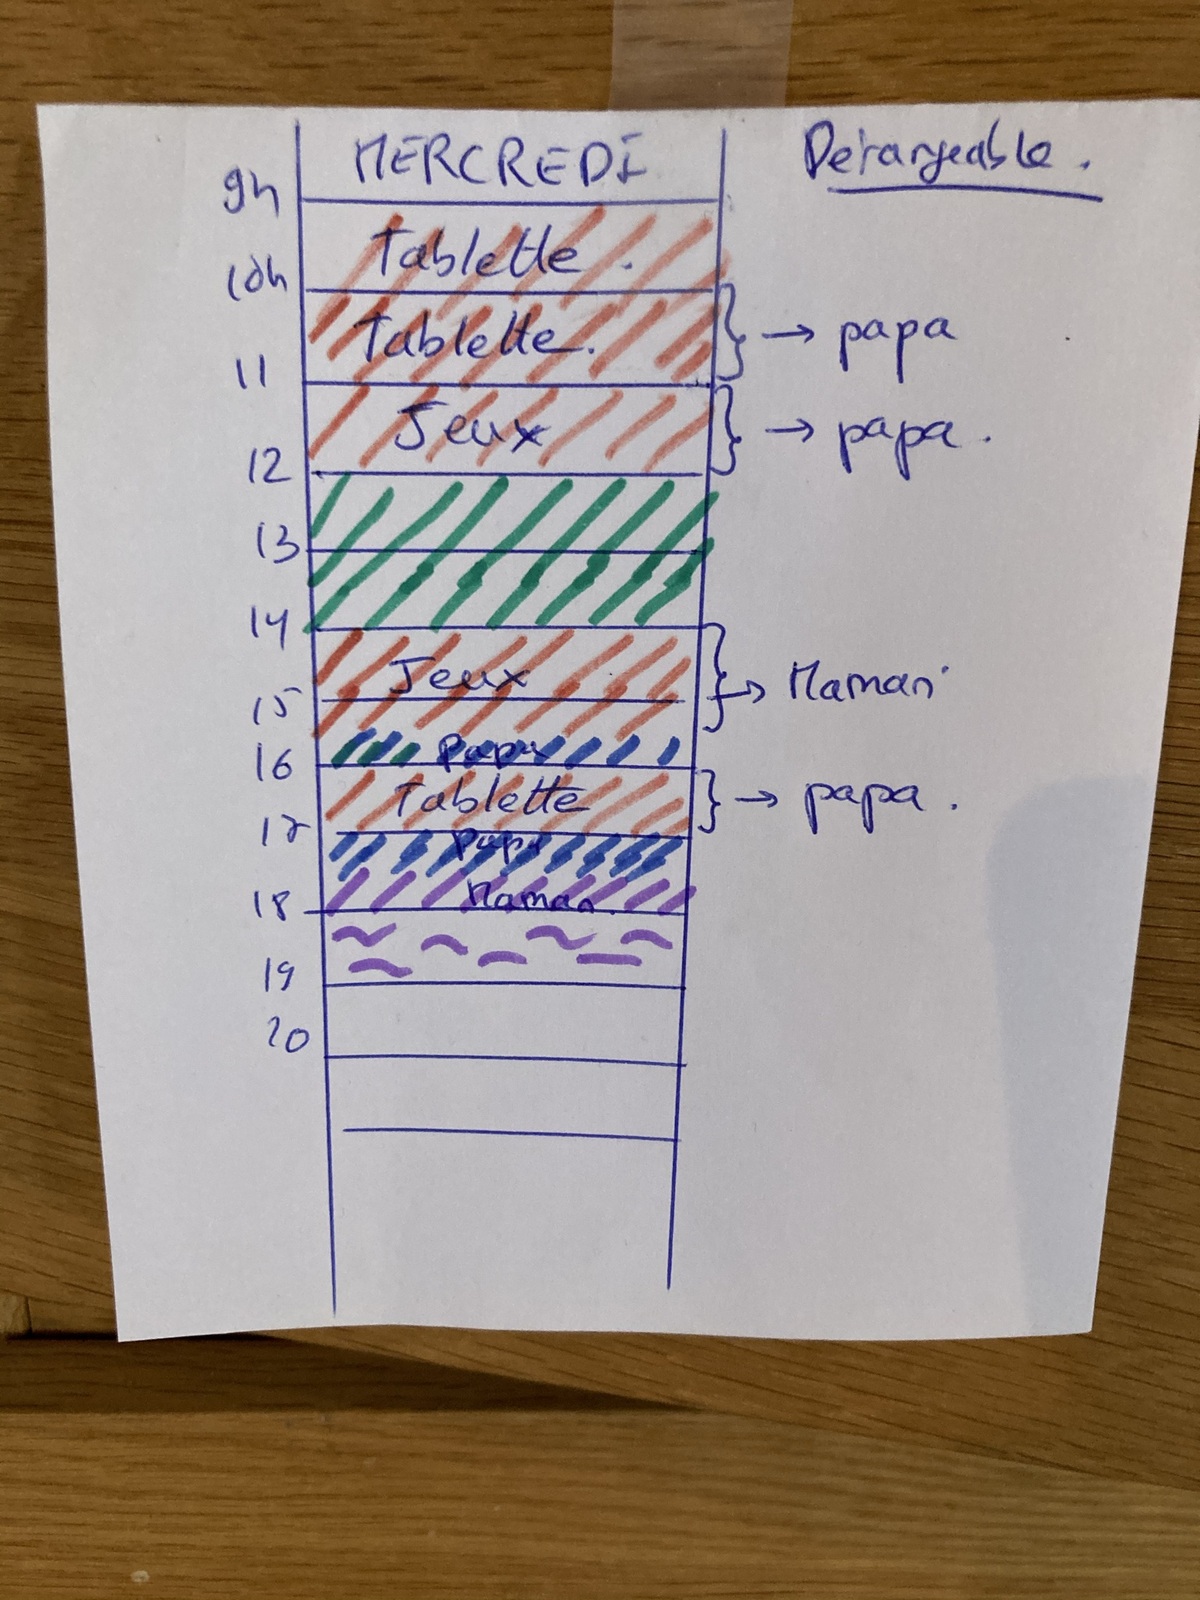 MERCREDI Dérangeable.
9h
Tablette.
10h
Tablette. → papa
11
Jeux → papa.
12
13
14
Jeux → Maman
15
Papa
16
Tablette → papa.
17
Papa
Maman.
18
19
20